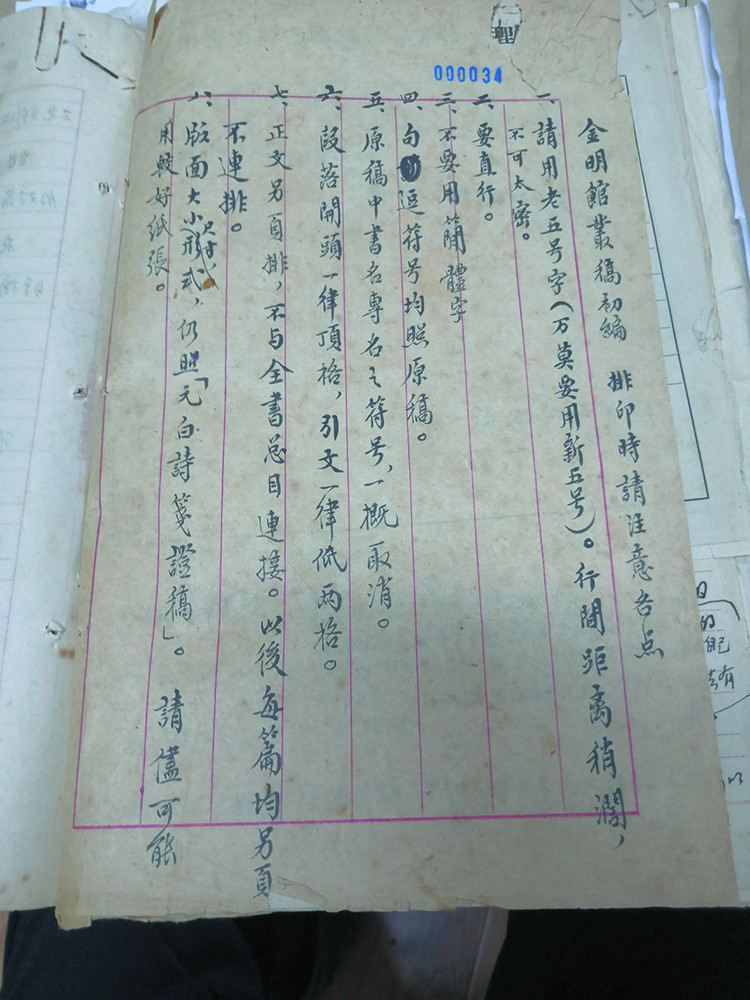 000034
金明館叢稿初編　排印時請注意各点
一、請用老五号字（万莫要用新五号）。行間距离稍濶，
不可太密。
二、要直行。
三、不要用简體字
四、句逗符号均照原稿。
五、原稿中書名專名之符号，一概取消。
六、段落開頭一律頂格，引文一律低两格。
七、正文另頁排，不与全書总目連接。以後每篇均另頁，
不連排。
八、版面大小尺寸形式，仍照「元白詩箋證稿」。請儘可能
用較好紙張。
自己